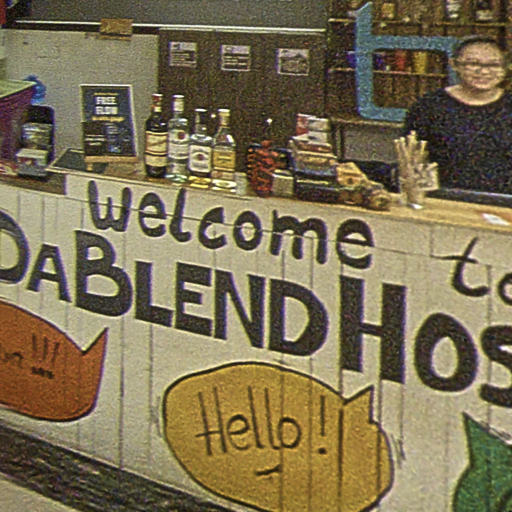 FREE
FLOW
welcome to
DABLEND HOS
!!!
Hello!